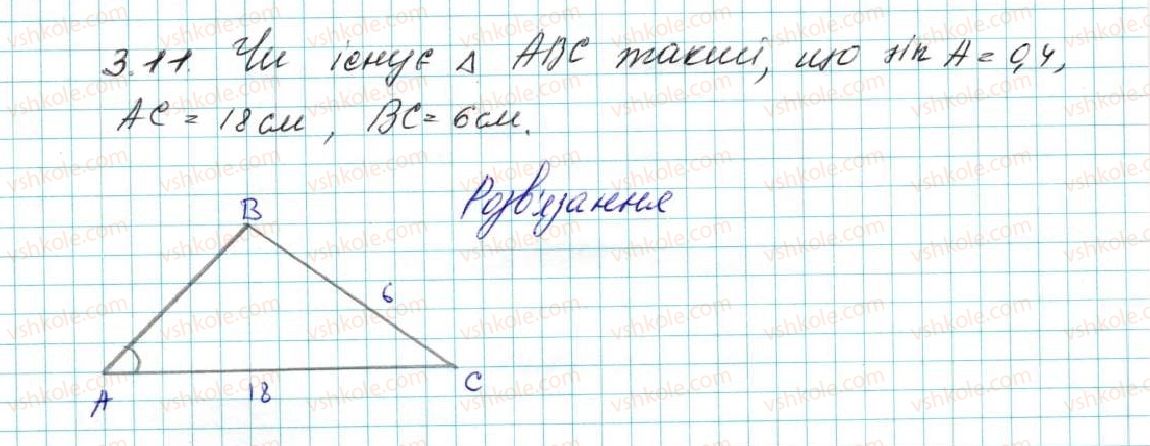 3.11. Чи існує △ ABC такий, що sin A = 0,4,
AC = 18 см, BC = 6 см.
Розв'язання
B
6
A
18
C
vshkole.com